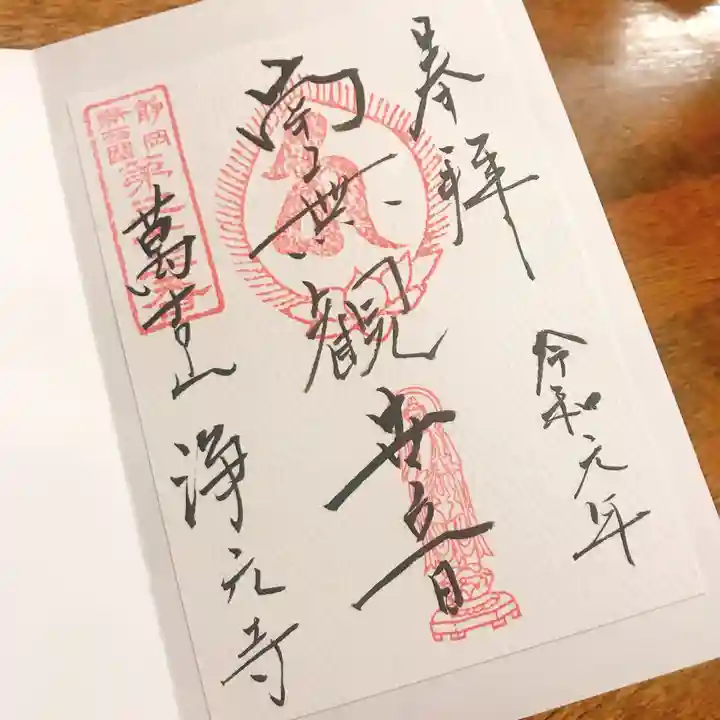 奉拝
令和元年
南無観世音
萬吉山
浄元寺
静岡
新西国